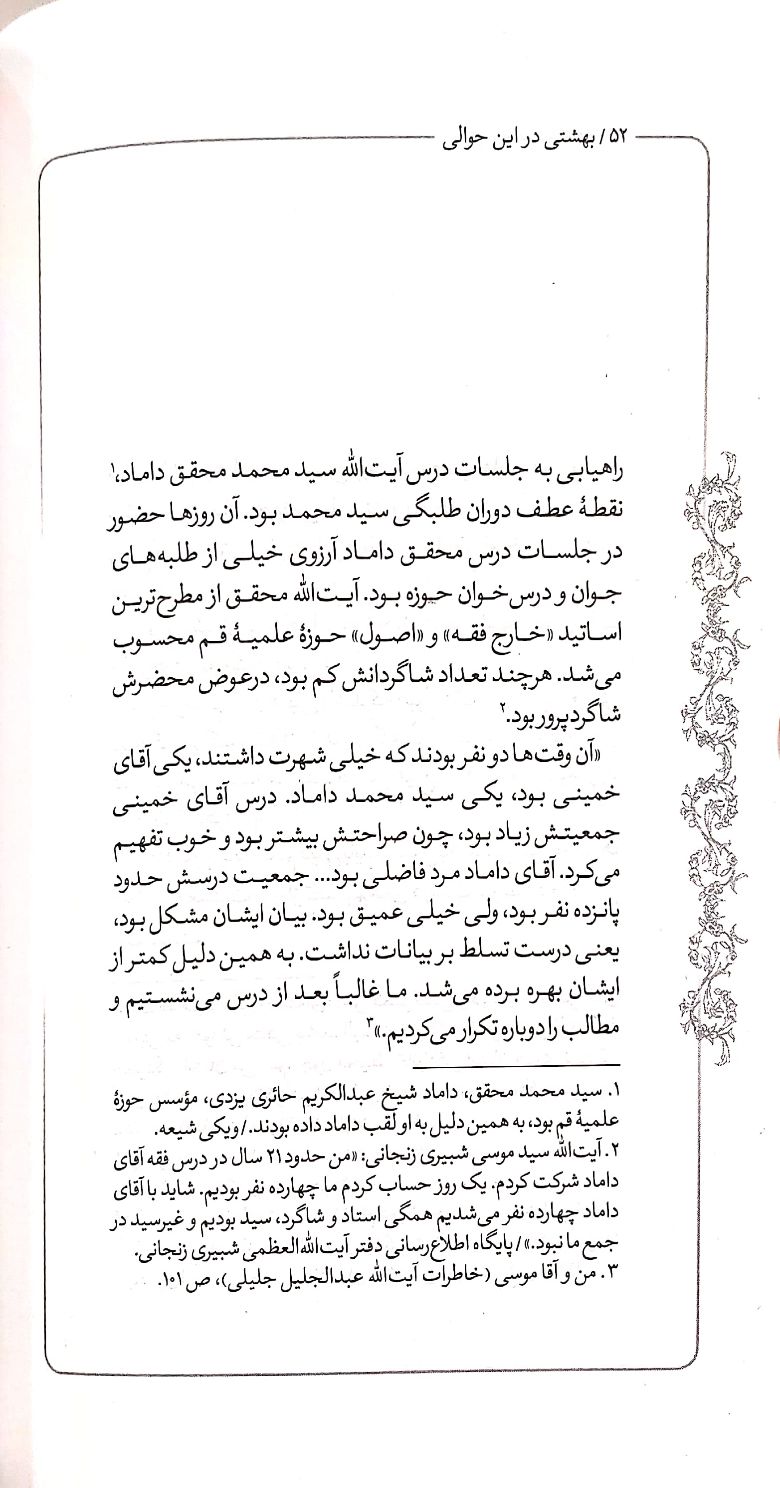 ۵۲ / بهشتی در این حوالی
راهیابی به جلسات درس آیت‌الله سید محمد محقق داماد،۱
نقطهٔ عطف دوران طلبگی سید محمد بود. آن روزها حضور
در جلسات درس محقق داماد آرزوی خیلی از طلبه‌های
جوان و درس‌خوان حوزه بود. آیت‌الله محقق از مطرح‌ترین
اساتید «خارج فقه» و «اصول» حوزهٔ علمیهٔ قم محسوب
می‌شد. هرچند تعداد شاگردانش کم بود، درعوض محضرش
شاگردپرور بود.۲
«آن وقت‌ها دو نفر بودند که خیلی شهرت داشتند، یکی آقای
خمینی بود، یکی سید محمد داماد. درس آقای خمینی
جمعیتش زیاد بود، چون صراحتش بیشتر بود و خوب تفهیم
می‌کرد. آقای داماد مرد فاضلی بود... جمعیت درسش حدود
پانزده نفر بود، ولی خیلی عمیق بود. بیان ایشان مشکل بود،
یعنی درست تسلط بر بیانات نداشت. به همین دلیل کمتر از
ایشان بهره برده می‌شد. ما غالباً بعد از درس می‌نشستیم و
مطالب را دوباره تکرار می‌کردیم.»۳
۱. سید محمد محقق، داماد شیخ عبدالکریم حائری یزدی، مؤسس حوزهٔ
علمیهٔ قم بود، به همین دلیل به او لقب داماد داده بودند./ ویکی شیعه.
۲. آیت‌الله سید موسی شبیری زنجانی: «من حدود ۲۱ سال در درس فقه آقای
داماد شرکت کردم. یک روز حساب کردم ما چهارده نفر بودیم. شاید با آقای
داماد چهارده نفر می‌شدیم همگی استاد و شاگرد، سید بودیم و غیرسید در
جمع ما نبود.» / پایگاه اطلاع‌رسانی دفتر آیت‌الله‌العظمی شبیری زنجانی.
۳. من و آقا موسی (خاطرات آیت‌الله عبدالجلیل جلیلی)، ص ۱۰۱.